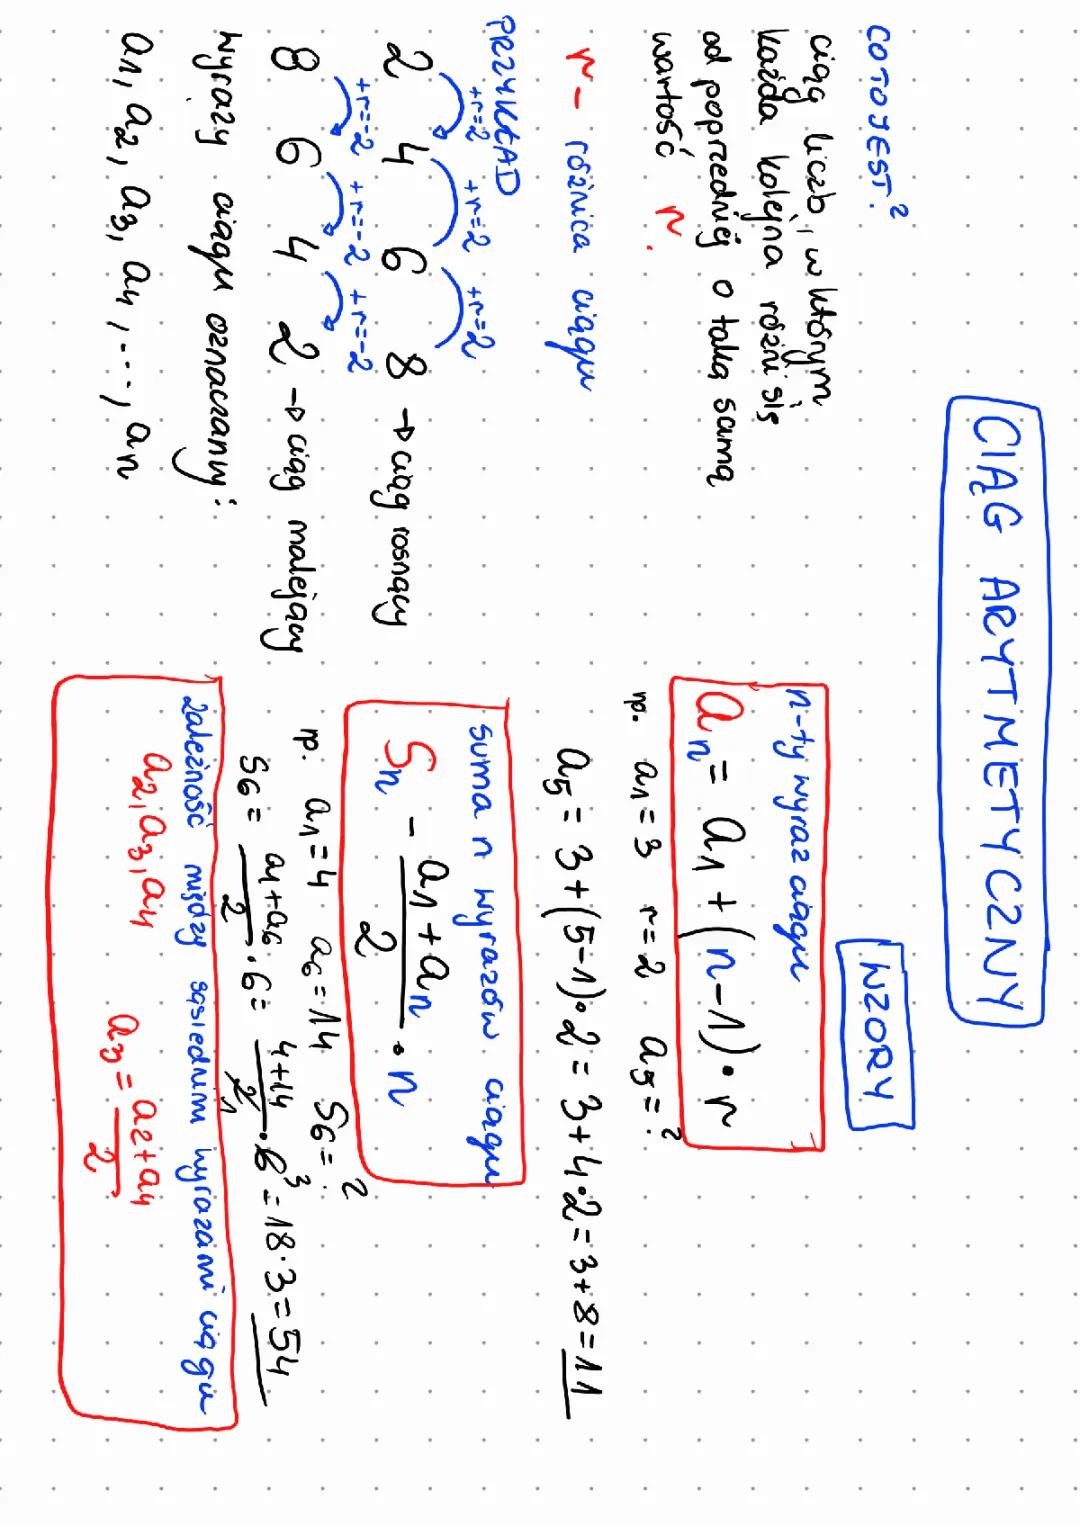 CIĄG ARYTMETYCZNY
CO TO JEST?
ciąg liczb, w którym
każda kolejna różni się
od poprzedniej o taką samą
wartość r.
r - różnica ciągu
PRZYKŁAD
+r=2 +r=2 +r=2
2 4 6 8 → ciąg rosnący
+r=-2 +r=-2 +r=-2
8 6 4 2 → ciąg malejący
wyrazy ciągu oznaczamy:
a1, a2, a3, a4, ..., an
WZORY
n-ty wyraz ciągu
an = a1 + (n-1)·r
np. a1=3 r=2 a5=?
a5 = 3+(5-1)·2 = 3+4·2=3+8=11
suma n wyrazów ciągu
Sn - a1+an/2 · n
np. a1=4 a6=14 S6=?
S6= a1+a6/2 ·6= 4+14/2 1 ·6 3 =18·3=54
zależność między sąsiednim wyrazami ciągu
a2, a3, a4 a3 = a2+a4/2